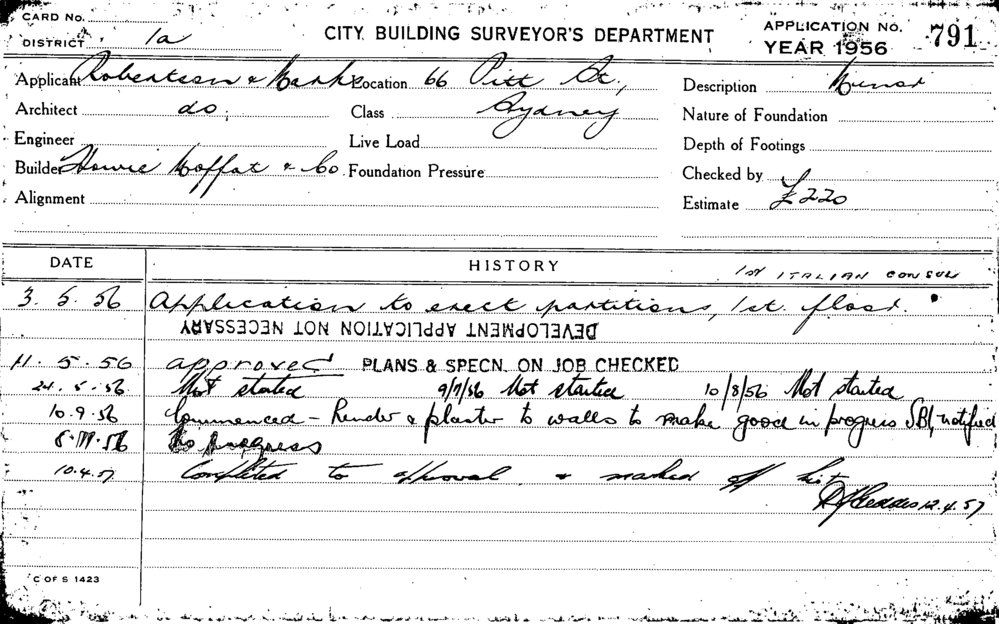 CARD No.
DISTRICT 1a
CITY BUILDING SURVEYOR'S DEPARTMENT
APPLICATION No. 791
YEAR 1956
Applicant Robertson & Marks Location 66 Pitt St, Description Minor
Architect do, Class Sydney Nature of Foundation
Engineer Live Load Depth of Footings
Builder Howie Moffat & Co. Foundation Pressure Checked by
Alignment Estimate £220
DATE HISTORY
1st ITALIAN CONSUL
3. 5. 56 Application to erect partitions, 1st. floor.
DEVELOPMENT APPLICATION NOT NECESSARY
11. 5. 56 approved PLANS & SPECN. ON JOB CHECKED
24. 5. 56 Not started 9/7/56 Not started 10/8/56 Not started
10. 9. 56 Commenced - Render & plaster to walls to make good in progress SBI, notified
No progress
10. 4. 57 Completed to approval & marked off list
12. 4. 57
C OF S 1423